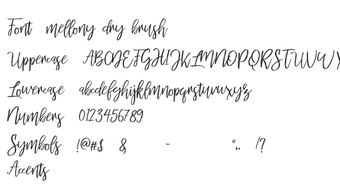 Font mellony dry brush
Uppercase ABCDEFGHIJKLMNOPQRSTUVWXY
Lowercase abcdefghijklmnopqrstuvwxyz
Numbers 0123456789
Symbols !@#$ & - ",. !?
Accents